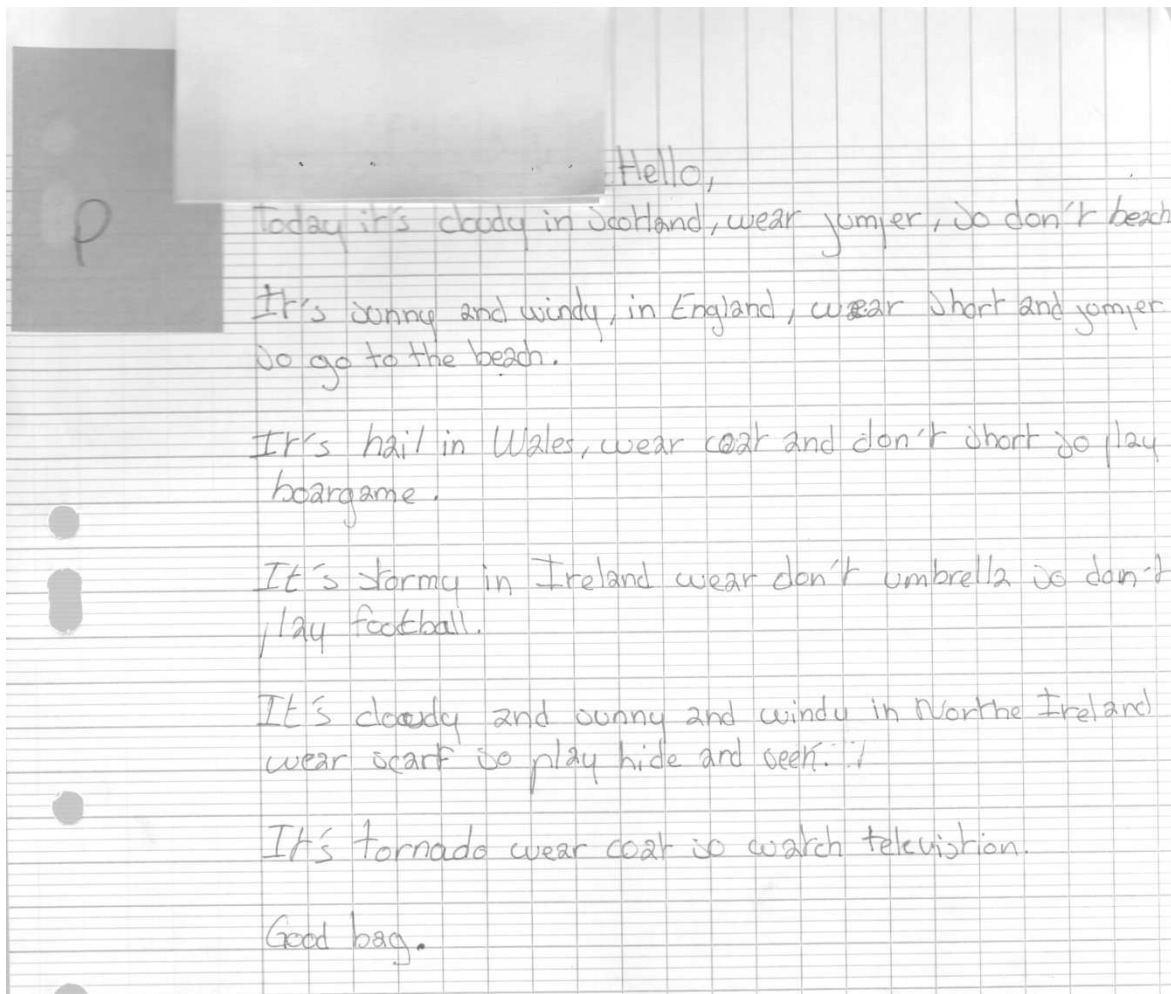 Hello,
P
Today it's cloody in Scotland, wear jumper, so don't beach
It's sonny and windy, in England, wear short and jomper
so go to the beach.
It's hail in Wales, wear coat and don't short so play
boargame.
It's stormy in Ireland wear don't umbrella so don't
play football.
It's cloudy and sunny and windy in Northe Ireland
wear scarf so play hide and seek.
It's tornado wear coat so watch televistion.
Good bag.